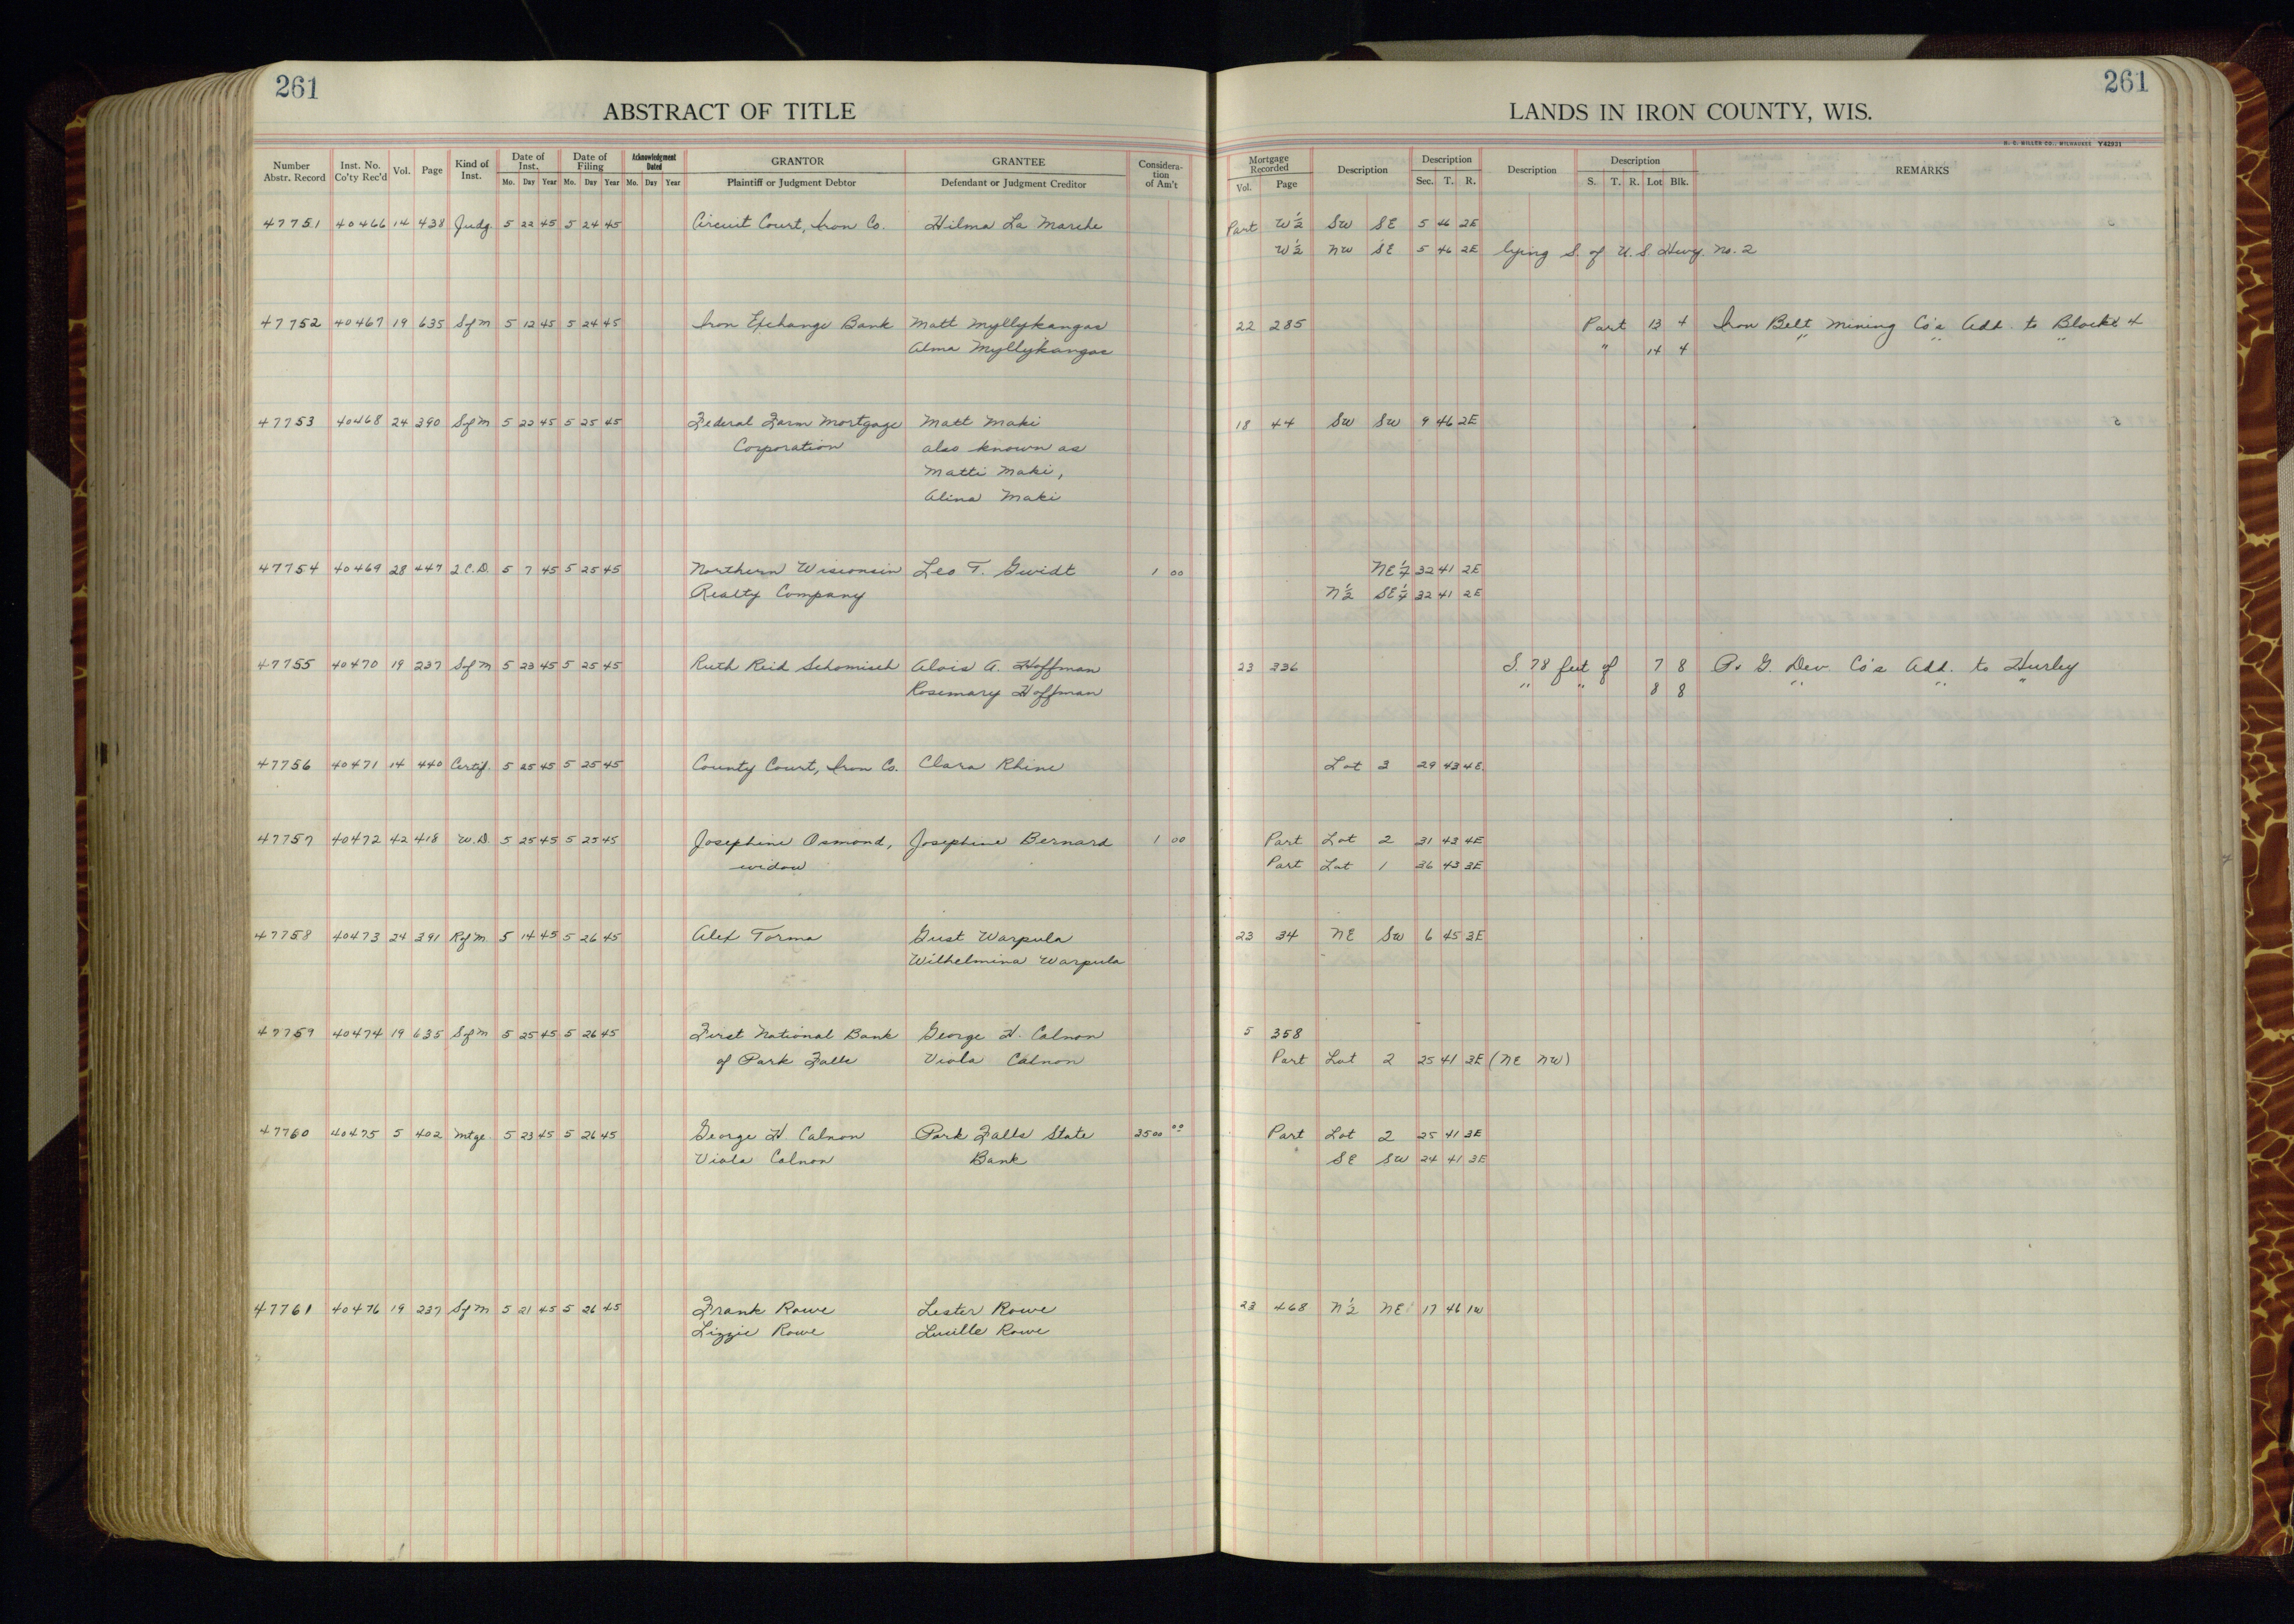 261
ABSTRACT OF TITLE
Number Abstr. Record | Inst. No. Co'ty Rec'd | Vol. | Page | Kind of Inst. | Date of Inst. Mo. Day Year | Date of Filing Mo. Day Year | Acknowledgment Dated Mo. Day Year | GRANTOR Plaintiff or Judgment Debtor | GRANTEE Defendant or Judgment Creditor | Considera-tion of Am't
261
LANDS IN IRON COUNTY, WIS.
H. C. MILLER CO., MILWAUKEE Y42931
Mortgage Recorded Vol. Page | Description | Description Sec. T. R. | Description | Description S. T. R. Lot Blk. | REMARKS
47751 40466 14 438 Judg. 5 22 45 5 24 45 Circuit Court, Iron Co. Hilma La Marche Part W½ SW SE 5 46 2E
W½ NW SE 5 46 2E lying S. of U.S. Hwy. No. 2
47752 40467 19 635 Sf M 5 12 45 5 24 45 Iron Exchange Bank Matt Myllykangas 22 285 Part 13 4 Iron Belt Mining Co's Add. to Block 4
Alma Myllykangas " 14 4 " " "
47753 40468 24 390 Sf M 5 22 45 5 25 45 Federal Farm Mortgage Matt Maki 18 44 SW SW 9 46 2E
Corporation also known as
Matti Maki,
Alina Maki
47754 40469 28 447 2 C.D. 5 7 45 5 25 45 Northern Wisconsin Leo T. Gwidt 1 00 NE¼ 32 41 2E
Realty Company N½ SE¼ 32 41 2E
47755 40470 19 237 Sf M 5 23 45 5 25 45 Ruth Reid Schomisch Alois A. Hoffman 23 336 S. 78 feet of 7 8 P. & G. Dev. Co's Add. to Hurley
Rosemary Hoffman " " 8 8 " " "
47756 40471 14 440 Certif. 5 25 45 5 25 45 County Court, Iron Co. Clara Rhine Lot 3 29 43 4E
47757 40472 42 418 W.D. 5 25 45 5 25 45 Josephine Osmond, Josephine Bernard 1 00 Part Lot 2 31 43 4E
widow Part Lot 1 36 43 3E
47758 40473 24 391 Rf M. 5 14 45 5 26 45 Alex Torma Gust Warpula 23 34 NE SW 6 45 3E
Wilhelmina Warpula
47759 40474 19 635 Sf M 5 25 45 5 26 45 First National Bank George H. Calnon 5 358
of Park Falls Viola Calnon Part Lot 2 25 41 3E (NE NW)
47760 40475 5 402 Mtge. 5 23 45 5 26 45 George H Calnon Park Falls State 3500 00 Part Lot 2 25 41 3E
Viola Calnon Bank SE SW 24 41 3E
47761 40476 19 237 Sf M 5 21 45 5 26 45 Frank Rowe Lester Rowe 23 468 N½ NE 17 46 1W
Lizzie Rowe Lucille Rowe